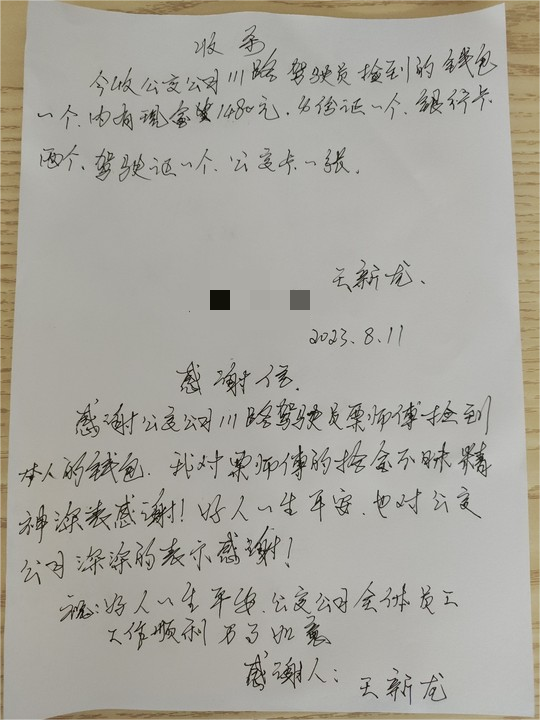 收条
今收公交公司111路驾驶员捡到的钱包
一个.内有现金1480元.身份证一个.银行卡
两个.驾驶证一个.公交卡一张.
王新龙.
2023.8.11
感谢信.
感谢公交公司111路驾驶员栗师傅捡到
本人的钱包.我对栗师傅的拾金不昧精
神深表感谢!好人一生平安.也对公交
公司深深的表示感谢!
祝:好人一生平安.公交公司全体员工
工作顺利 万事如意
感谢人:王新龙